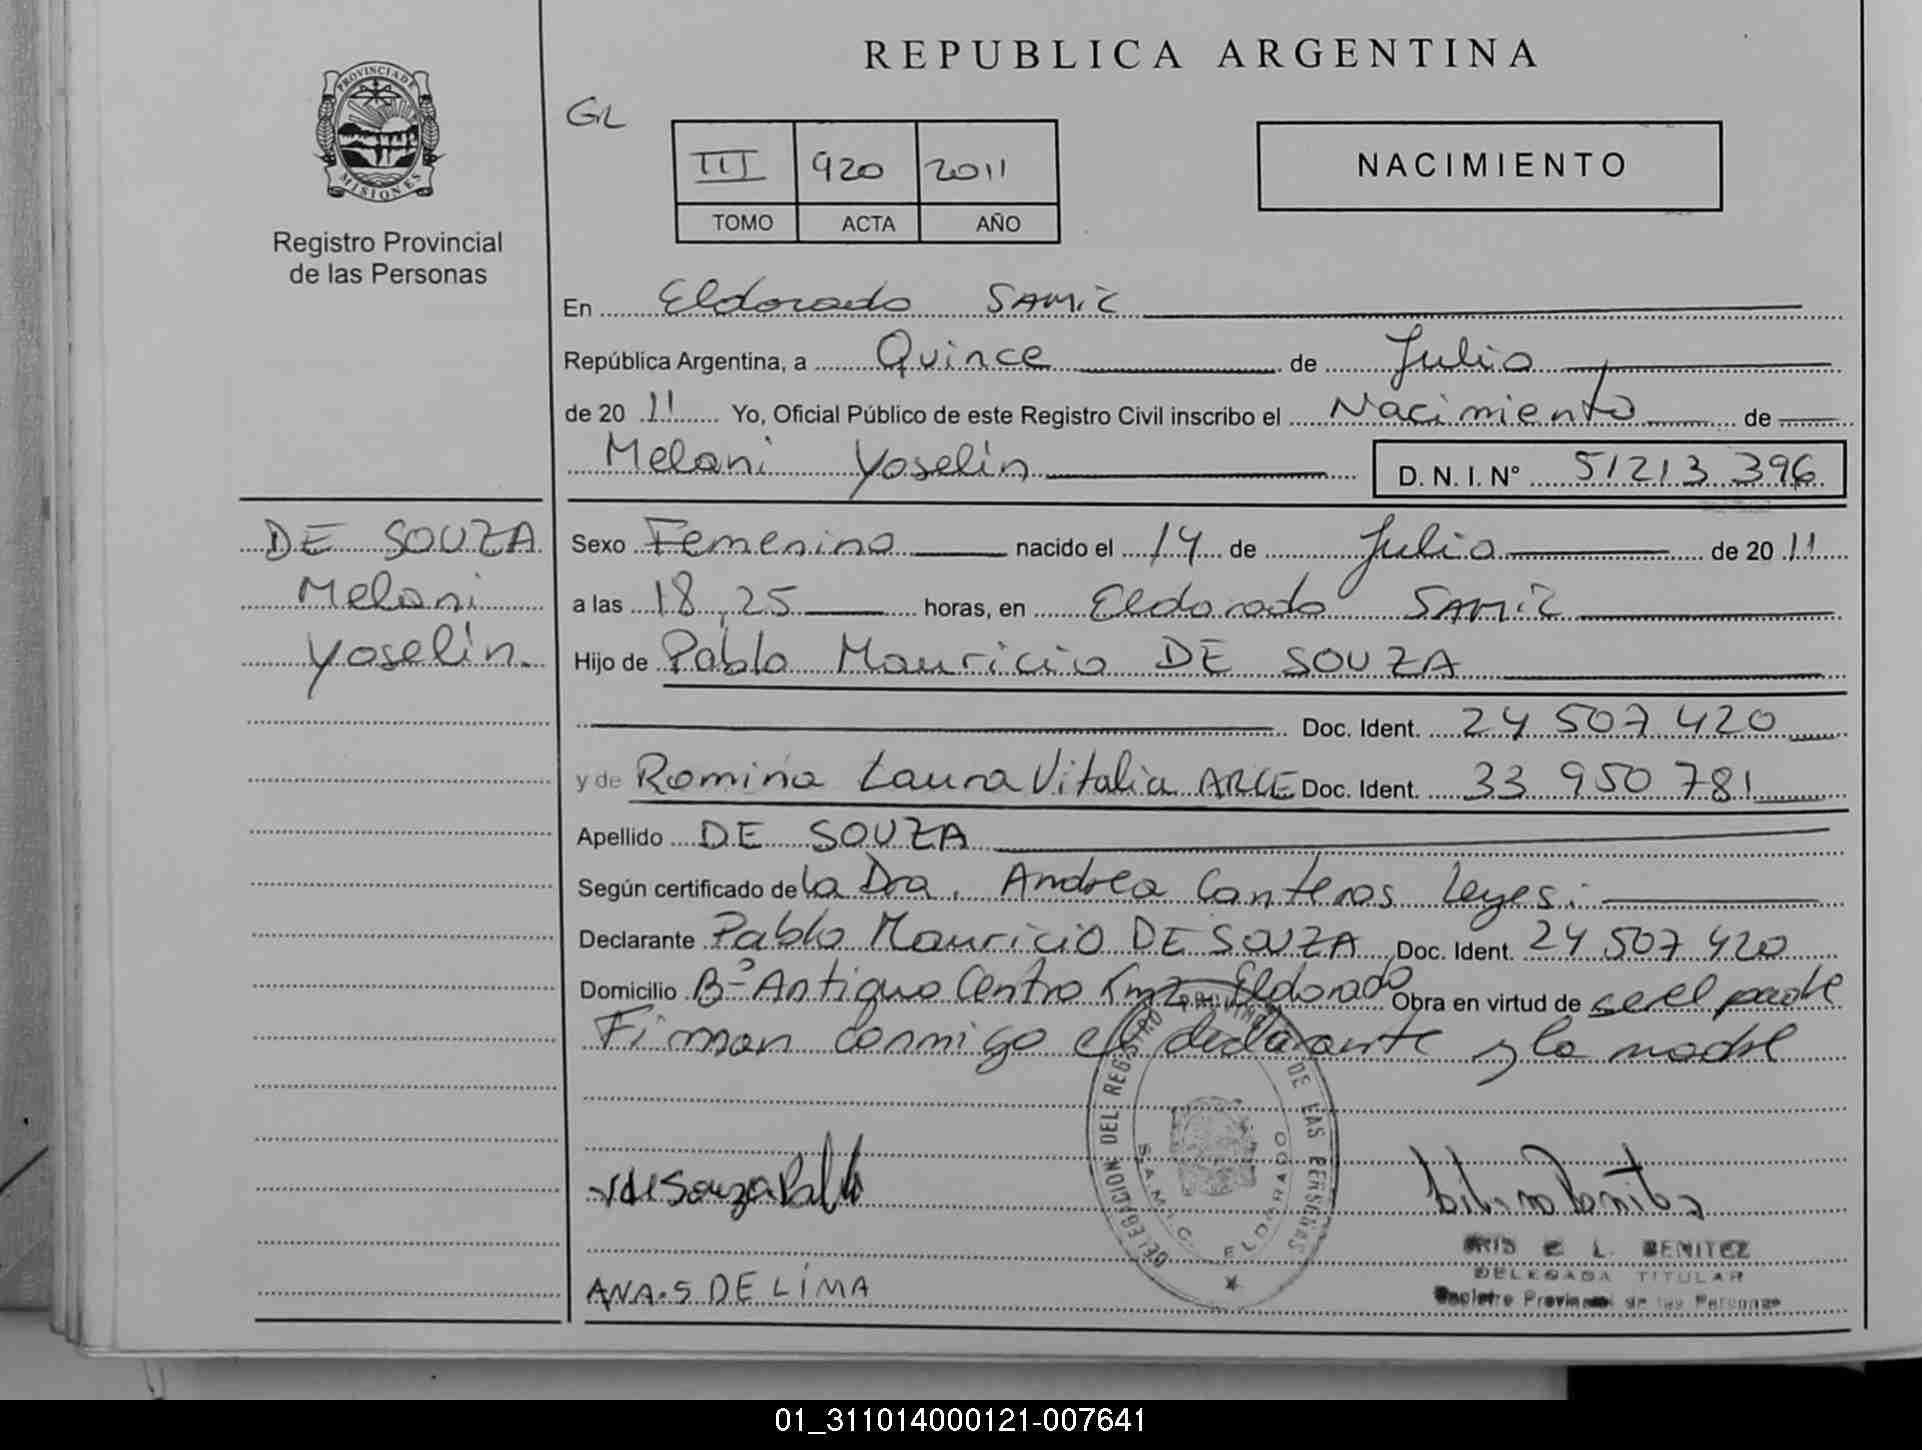 REPUBLICA ARGENTINA
PROVINCIA DE MISIONES
Registro Provincial
de las Personas
GL
III 920 2011
TOMO ACTA AÑO
NACIMIENTO
En Eldorado SAMIC
República Argentina, a Quince de Julio
de 20 11 Yo, Oficial Público de este Registro Civil inscribo el Nacimiento de
Melani Yoselin D. N. I. N° 51213 396
DE SOUZA
Melani
Yoselin.
Sexo Femenino nacido el 14 de Julio de 20 11
a las 18,25 horas, en Eldorado SAMIC
Hijo de Pablo Mauricio DE SOUZA
Doc. Ident. 24 507 420
y de Romina Laura Vitalia ARCE Doc. Ident. 33 950 781
Apellido DE SOUZA
Según certificado de la Dra. Andrea Canteros Leyes.
Declarante Pablo Mauricio DE SOUZA Doc. Ident. 24 507 420
Domicilio Bº Antiguo Centro Km2 Eldorado Obra en virtud de ser el padre
Firman conmigo el declarante y la madre
DELEGACION DEL REGISTRO PROVINCIAL DE LAS PERSONAS
S.A.M.I.C. ELDORADO
de Souza Pablo
ANA.S DE LIMA
IRIS E L. BENITEZ
DELEGADA TITULAR
Registro Provincial de las Personas
01_311014000121-007641